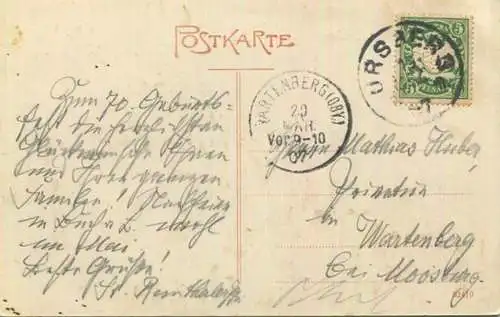 POSTKARTE
URSBERG
5 5
WARTENBERG (OBY.)
20
MÄR.
Vor. 9-10
07
Zum 70. Geburts-
fest die herzlichsten
Glückwünsche Ihnen
und Ihrer ganzen
Familie!
in
im Mai
Beste Grüße!
Herrn Mathias Huber
Privatier
in Wartenberg
Bei Moosburg.